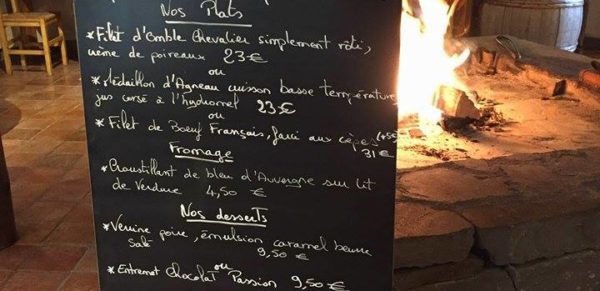 Nos Plats
*Filet d'Omble Chevalier simplement rôti,
crème de poireaux 23€
ou
*Médaillon d'Agneau cuisson basse température,
jus corsé à l'hydromel 23€
ou
*Filet de Boeuf Français, farci aux cèpes (+5€
31€
Fromage
*Croustillant de bleu d'Auvergne sur lit
de Verdure 4,50 €
Nos desserts
*Verrine poire, émulsion caramel beurre
salé 9,50 €
ou
*Entremet Chocolat Passion 9,50 €